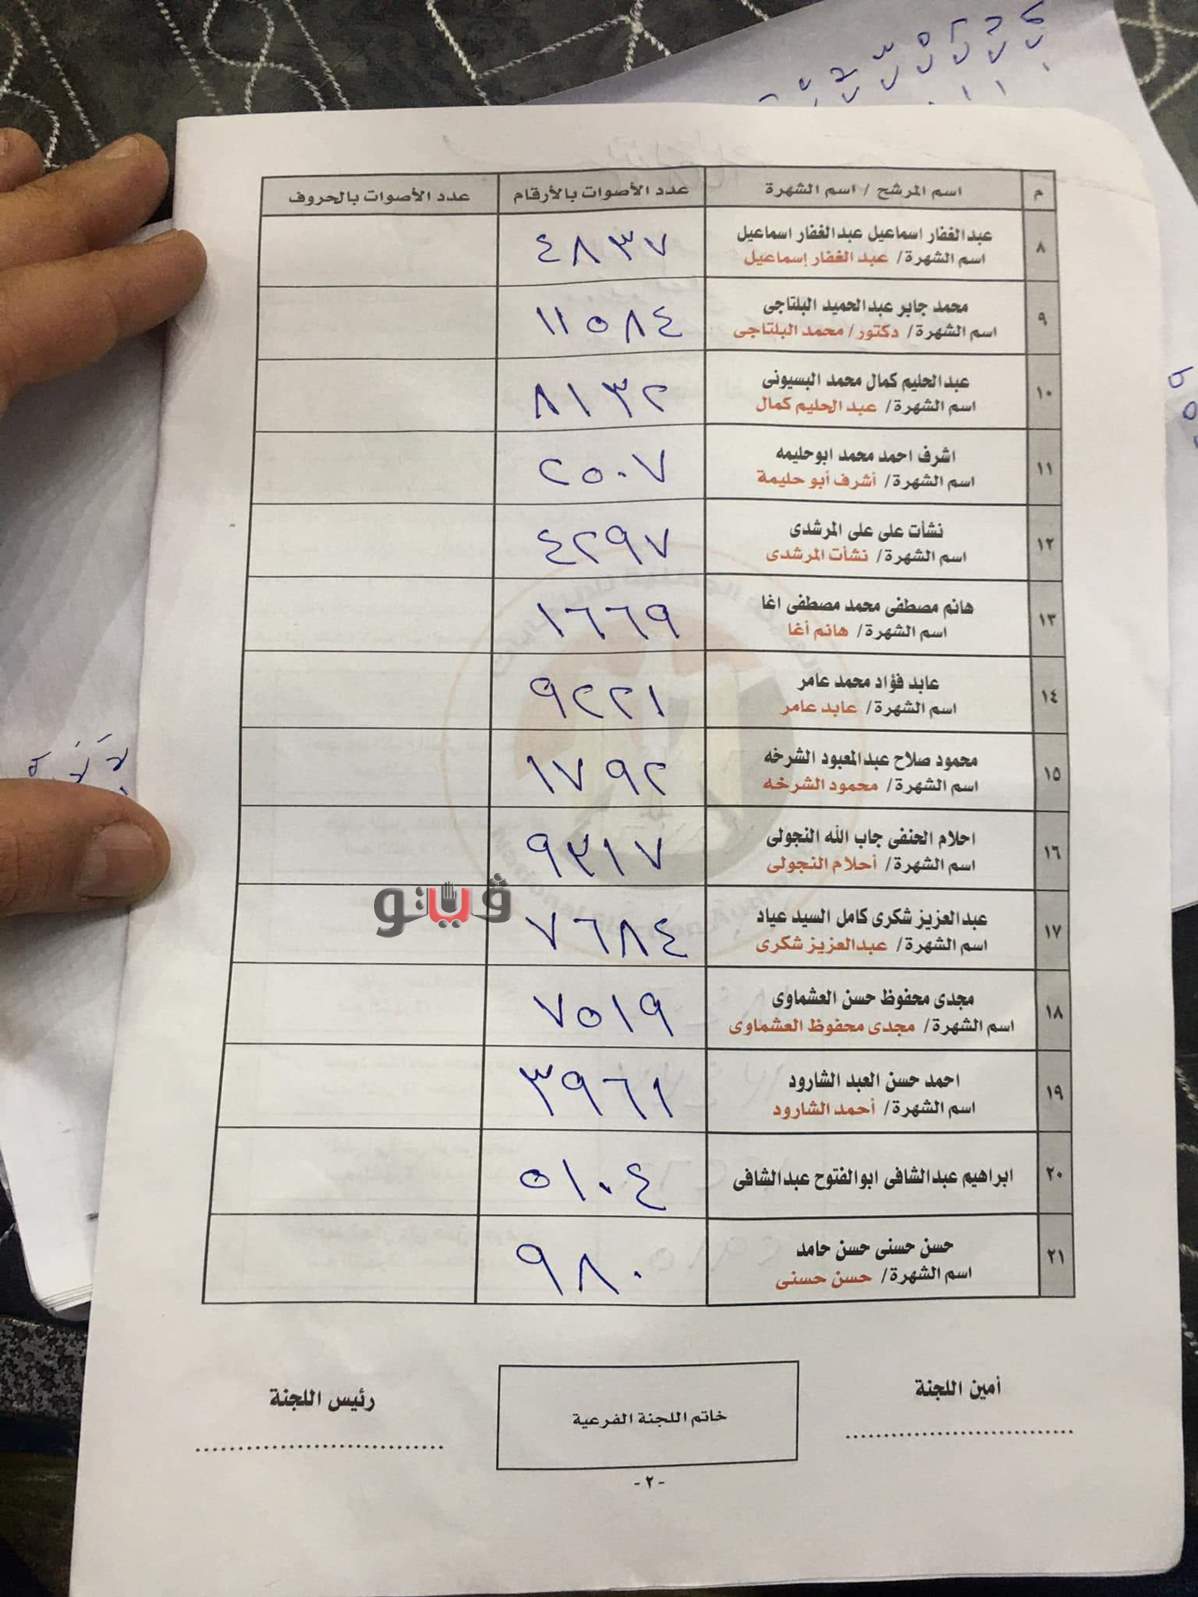 م اسم المرشح / اسم الشهرة عدد الأصوات بالأرقام عدد الأصوات بالحروف
٨ عبدالغفار اسماعيل عبدالغفار اسماعيل ٤٨٣٧
اسم الشهرة/ عبد الغفار إسماعيل
٩ محمد جابر عبدالحميد البلتاجى ١١٥٨٤
اسم الشهرة/ دكتور/ محمد البلتاجى
١٠ عبدالحليم كمال محمد البسيونى ٨١٣٢
اسم الشهرة/ عبد الحليم كمال
١١ اشرف احمد محمد ابوحليمه ٢٥٠٧
اسم الشهرة/ أشرف أبو حليمة
١٢ نشأت على على المرشدى ٤٢٩٧
اسم الشهرة/ نشأت المرشدى
١٣ هانم مصطفى محمد مصطفى اغا ١٦٦٩
اسم الشهرة/ هانم أغا
١٤ عابد فؤاد محمد عامر ٩٢٢١
اسم الشهرة/ عابد عامر
١٥ محمود صلاح عبدالمعبود الشرخه ١٧٩٢
اسم الشهرة/ محمود الشرخه
١٦ احلام الحنفى جاب الله النجولى ٩٣١٧
اسم الشهرة/ أحلام النجولى
ڤيتو
١٧ عبدالعزيز شكرى كامل السيد عياد ٧٦٨٤
اسم الشهرة/ عبدالعزيز شكرى
١٨ مجدى محفوظ حسن العشماوى ٧٥١٩
اسم الشهرة/ مجدى محفوظ العشماوى
١٩ احمد حسن العبد الشارود ٣٩٦١
اسم الشهرة/ أحمد الشارود
٢٠ ابراهيم عبدالشافى ابوالفتوح عبدالشافى ٥١٠٤
٢١ حسن حسنى حسن حامد ٩٨٠
اسم الشهرة/ حسن حسنى
أمين اللجنة
خاتم اللجنة الفرعية
رئيس اللجنة
- ٢ -